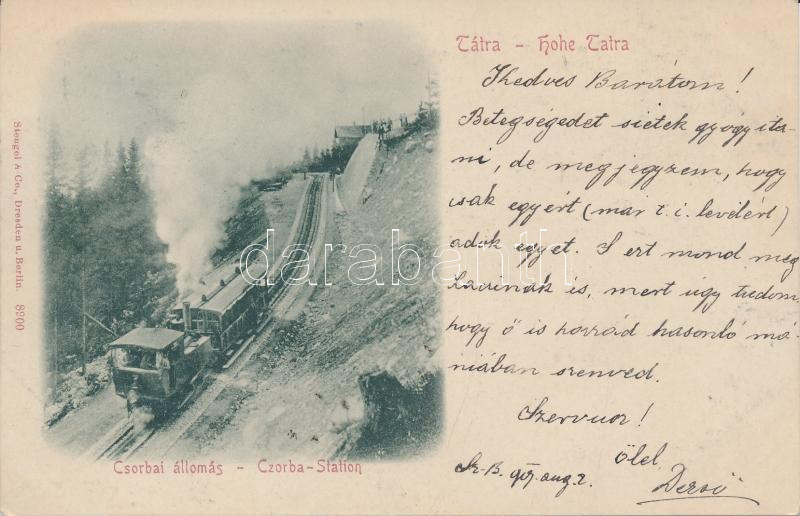 Tátra - Hohe Tatra
Kedves Barátom!
Betegségedet sietek gyógyíta-
ni, de megjegyzem, hogy
csak egyért (már t. i. levélért)
adok egyet. S ezt mond meg
is, mert úgy tudom
hogy ő is hozzád hasonló má-
niában szenved.
Szervusz!
ölel
Dezső
907. aug. 2.
Csorbai állomás - Czorba-Station
Stengel & Co., Dresden u. Berlin. 8900
darabanth